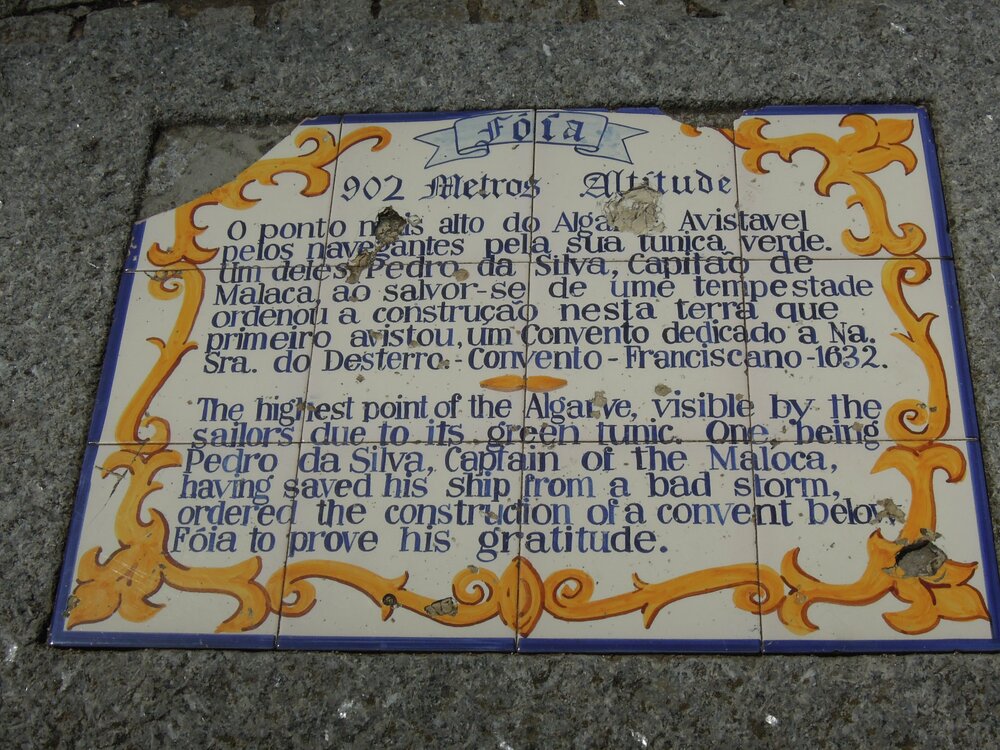 Fóia
902 Metros Altitude
O ponto mais alto do Algarve Avistavel
pelos navegantes pela sua tunica verde.
Um deles Pedro da Silva, Capitão de
Malaca, ao salvor-se de ume tempestade
ordenou a construção nesta terra que
primeiro avistou, um Convento dedicado a Na.
Sra. do Desterro.- Convento - Franciscano -1632.
The highest point of the Algarve, visible by the
sailors due to its green tunic. One being
Pedro da Silva, Captain of the Maloca,
having saved his ship from a bad storm,
ordered the construction of a convent below
Fóia to prove his gratitude.